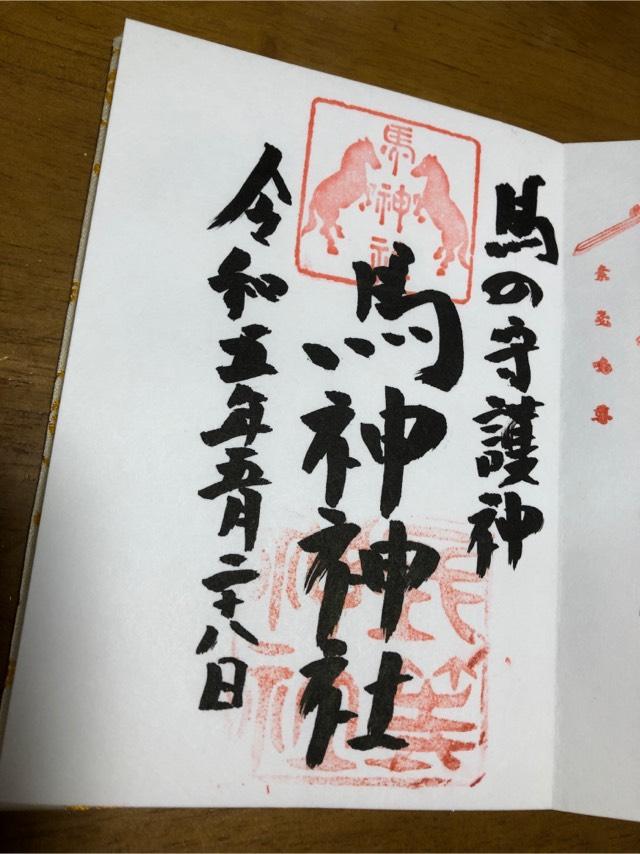 馬の守護神
馬神社
馬神神社
令和五年五月二十八日
素戔嗚尊